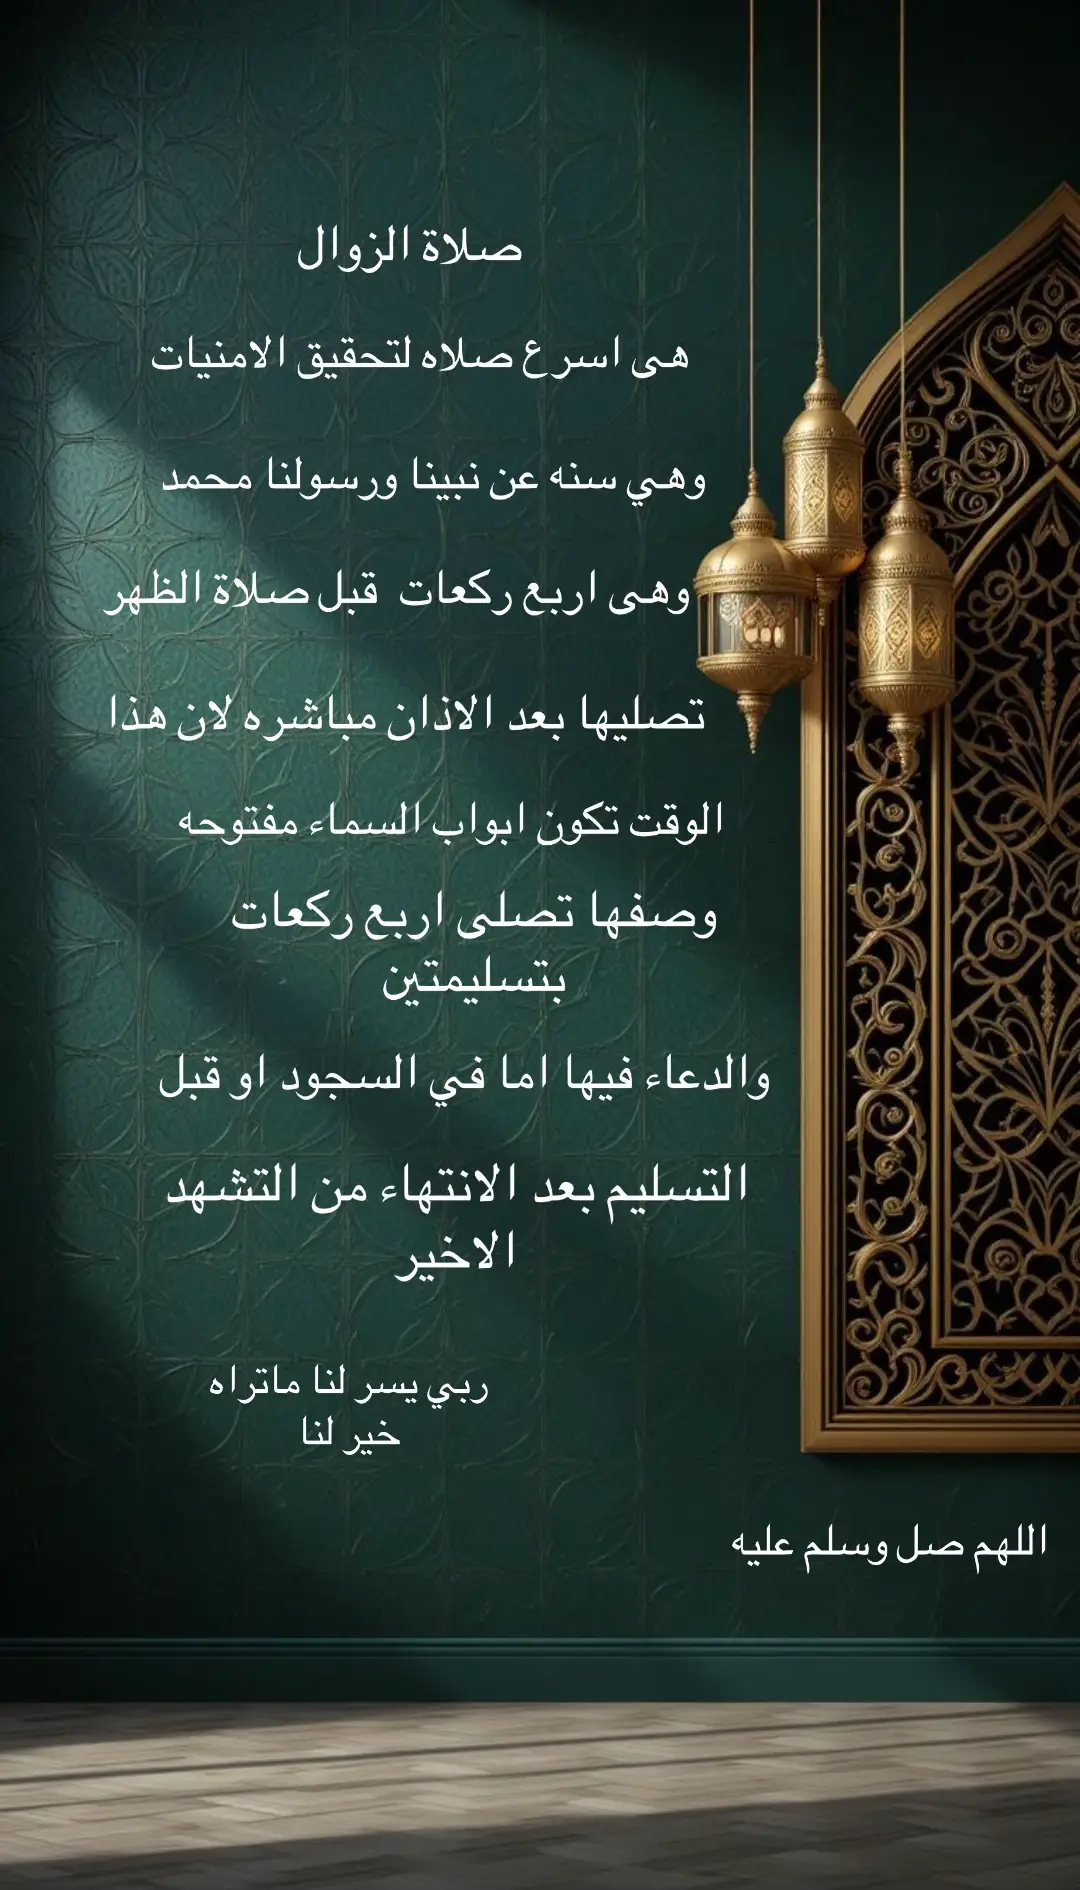 صلاة الزوال
هى اسرع صلاه لتحقيق الامنيات
وهي سنه عن نبينا ورسولنا محمد
وهى اربع ركعات قبل صلاة الظهر
تصليها بعد الاذان مباشره لان هذا
الوقت تكون ابواب السماء مفتوحه
وصفها تصلى اربع ركعات
بتسليمتين
والدعاء فيها اما في السجود او قبل
التسليم بعد الانتهاء من التشهد
الاخير
ربي يسر لنا ماتراه
خير لنا
اللهم صل وسلم عليه